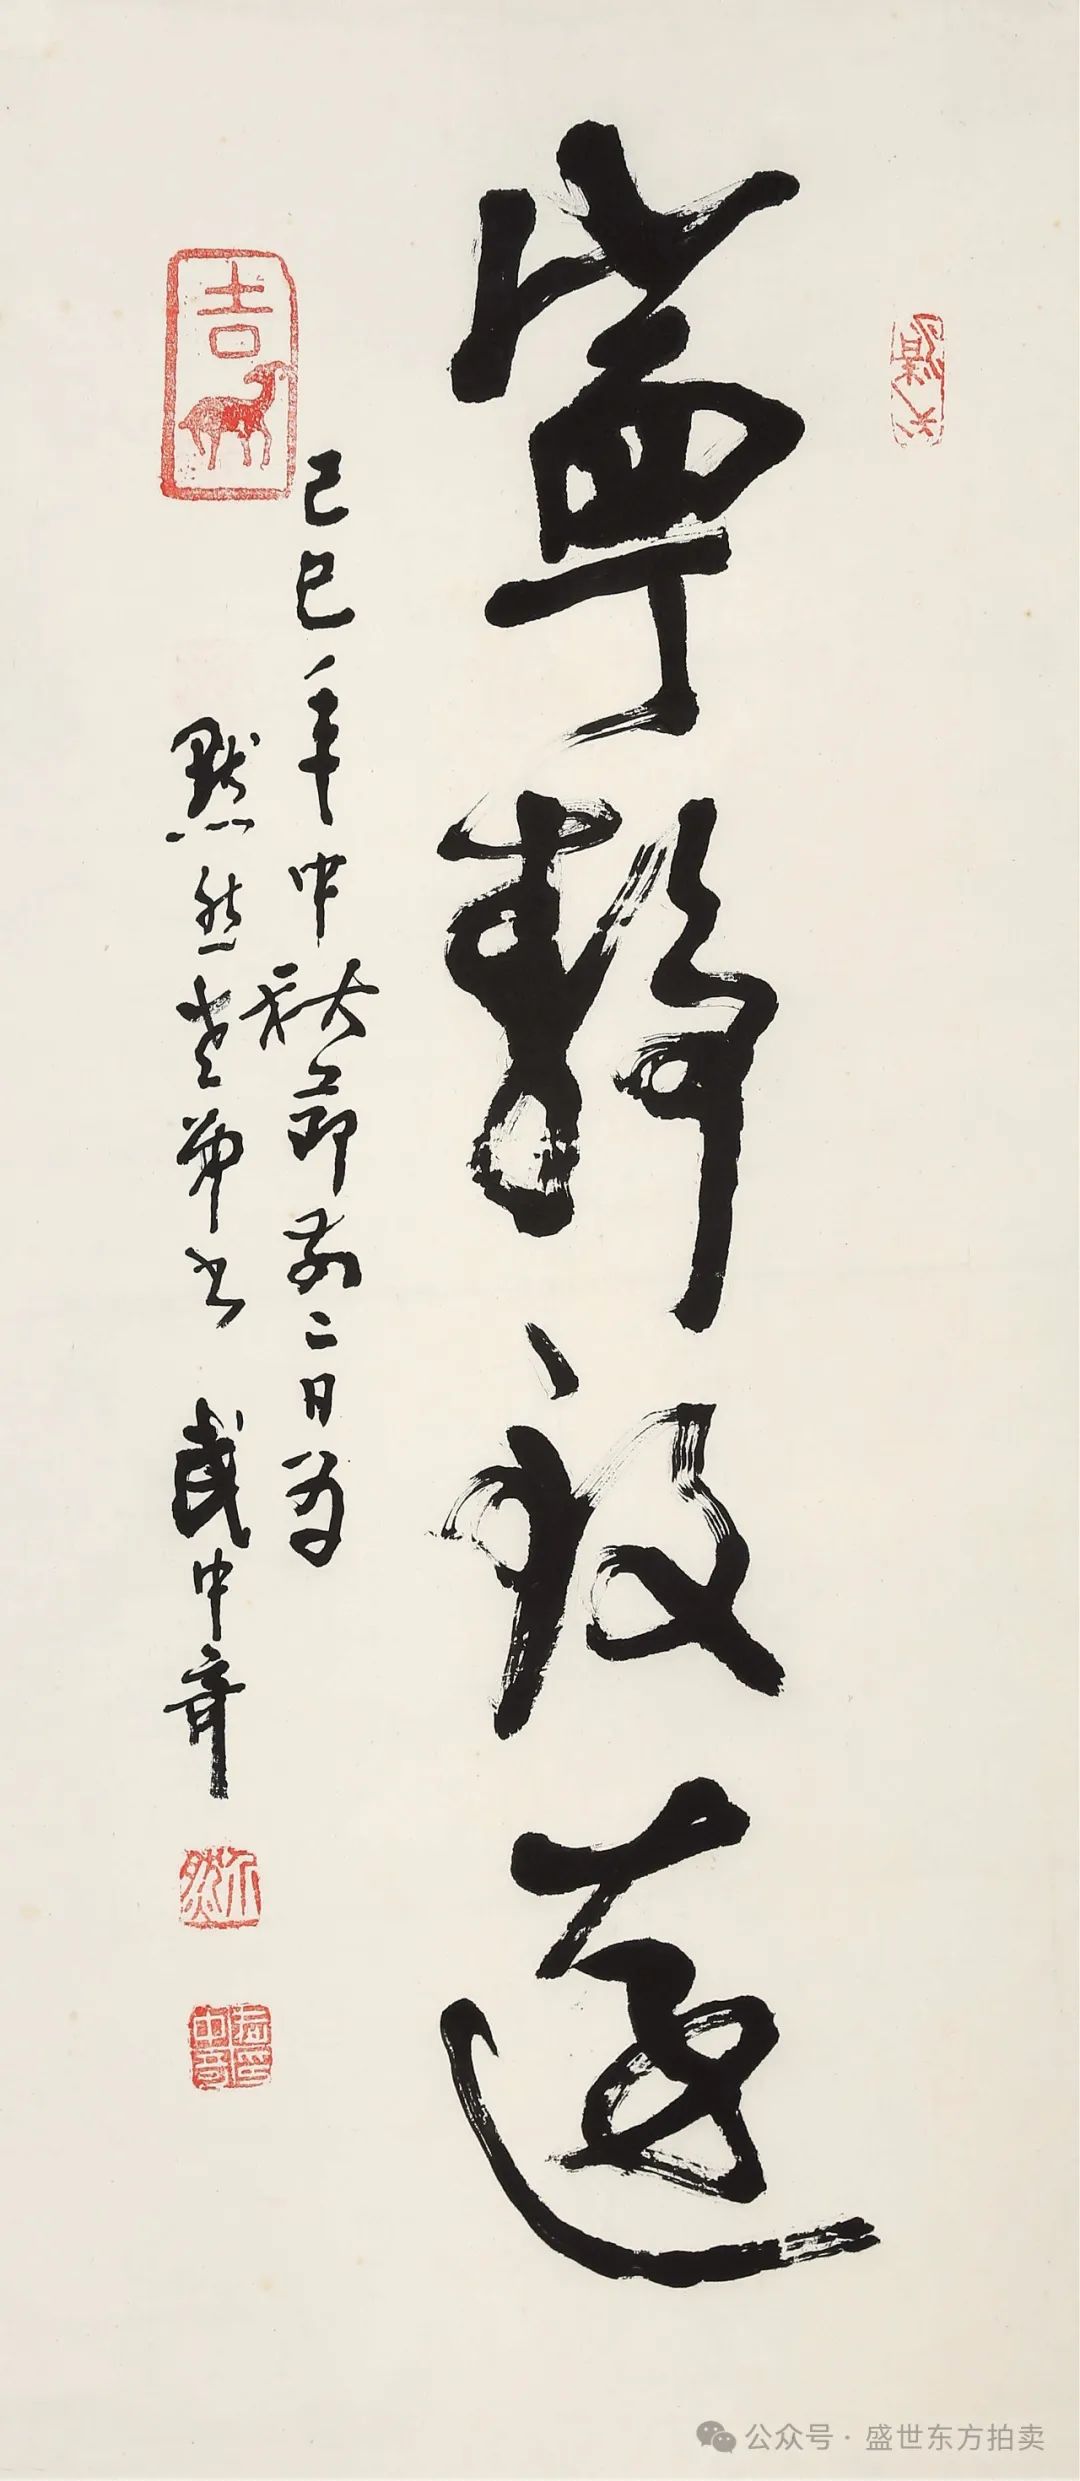 寧靜致遠
己巳年中秋節前二日為
默然老弟書 武中奇
吉
公众号·盛世东方拍卖